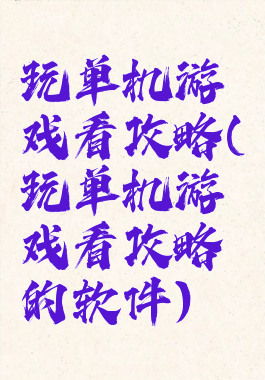 玩单机游
戏看攻略(
玩单机游
戏看攻略
的软件)